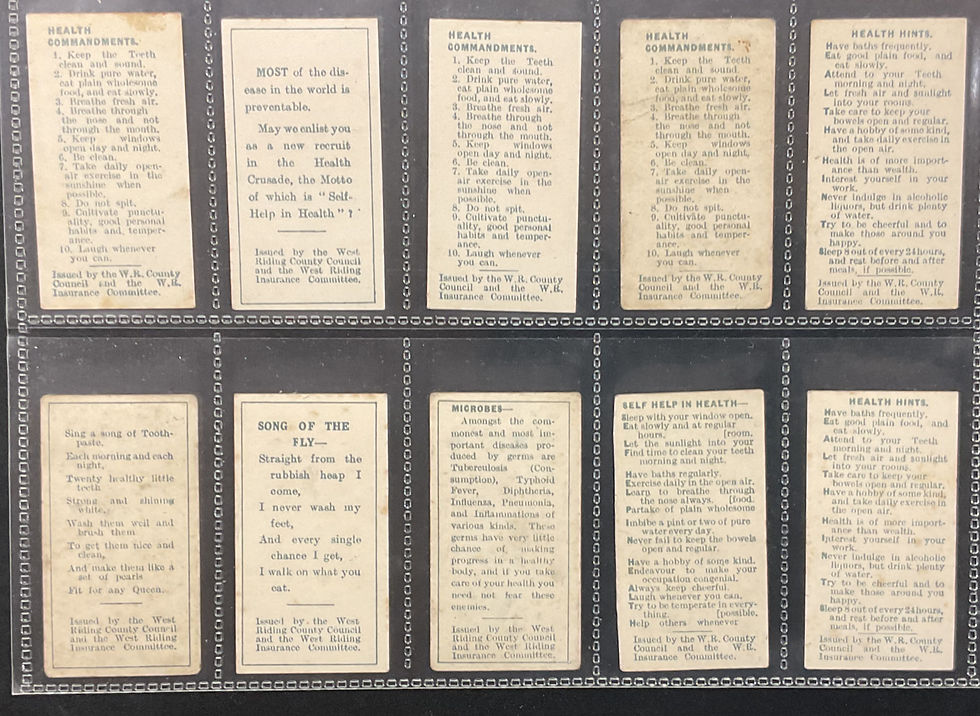 HEALTH
COMMANDMENTS.
1. Keep the Teeth
clean and sound.
2. Drink pure water,
eat plain wholesome
food, and eat slowly.
3. Breathe fresh air.
4. Breathe through
the nose and not
through the mouth.
5. Keep windows
open day and night.
6. Be clean.
7. Take daily open-
air exercise in the
sunshine when
possible.
8. Do not spit.
9. Cultivate punctu-
ality, good personal
habits and temper-
ance.
10. Laugh whenever
you can.
Issued by the W.R. County
Council and the W.R.
Insurance Committee.
MOST of the dis-
ease in the world is
preventable.
May we enlist you
as a new recruit
in the Health
Crusade, the Motto
of which is "Self-
Help in Health"?
Issued by the West
Riding County Council
and the West Riding
Insurance Committee.
HEALTH
COMMANDMENTS.
1. Keep the Teeth
clean and sound.
2. Drink pure water,
eat plain wholesome
food, and eat slowly.
3. Breathe fresh air.
4. Breathe through
the nose and not
through the mouth.
5. Keep windows
open day and night.
6. Be clean.
7. Take daily open-
air exercise in the
sunshine when
possible.
8. Do not spit.
9. Cultivate punctu-
ality, good personal
habits and temper-
ance.
10. Laugh whenever
you can.
Issued by the W.R. County
Council and the W.R.
Insurance Committee.
HEALTH
COMMANDMENTS.
1. Keep the Teeth
clean and sound.
2. Drink pure water,
eat plain wholesome
food, and eat slowly.
3. Breathe fresh air.
4. Breathe through
the nose and not
through the mouth.
5. Keep windows
open day and night.
6. Be clean.
7. Take daily open-
air exercise in the
sunshine when
possible.
8. Do not spit.
9. Cultivate punctu-
ality, good personal
habits and temper-
ance.
10. Laugh whenever
you can.
Issued by the W.R. County
Council and the W.R.
Insurance Committee.
HEALTH HINTS.
Have baths frequently.
Eat good plain food, and
eat slowly.
Attend to your Teeth
morning and night.
Let fresh air and sunlight
into your rooms.
Take care to keep your
bowels open and regular.
Have a hobby of some kind,
and take daily exercise in
the open air.
Health is of more import-
ance than wealth.
Interest yourself in your
work.
Never indulge in alcoholic
liquors, but drink plenty
of water.
Try to be cheerful and to
make those around you
happy.
Sleep 8 out of every 24 hours,
and rest before and after
meals, if possible.
Issued by the W.R. County
Council and the W.R.
Insurance Committee.
Sing a song of Tooth-
paste,
Each morning and each
night,
Twenty healthy little
teeth
Strong and shining
white,
Wash them well and
brush them
To get them nice and
clean,
And make them like a
set of pearls
Fit for any Queen.
Issued by the West
Riding County Council
and the West Riding
Insurance Committee.
SONG OF THE
FLY—
Straight from the
rubbish heap I
come,
I never wash my
feet,
And every single
chance I get,
I walk on what you
eat.
Issued by the West
Riding County Council
and the West Riding
Insurance Committee.
MICROBES—
Amongst the com-
monest and most im-
portant diseases pro-
duced by germs are
Tuberculosis (Con-
sumption), Typhoid
Fever, Diphtheria,
Influenza, Pneumonia,
and Inflammations of
various kinds. These
germs have very little
chance of making
progress in a healthy
body, and if you take
care of your health you
need not fear these
enemies.
Issued by the West
Riding County Council
and the West Riding
Insurance Committee.
SELF HELP IN HEALTH—
Sleep with your window open.
Eat slowly and at regular
hours. [room.
Let the sunlight into your
Find time to clean your teeth
morning and night.
Have baths regularly.
Exercise daily in the open air.
Learn to breathe through
the nose always. [food.
Partake of plain wholesome
Imbibe a pint or two of pure
water every day.
Never fail to keep the bowels
open and regular.
Have a hobby of some kind.
Endeavour to make your
occupation congenial.
Always keep cheerful.
Laugh whenever you can.
Try to be temperate in every-
thing. [possible.
Help others whenever
Issued by the W.R. County
Council and the W.R.
Insurance Committee.
HEALTH HINTS.
Have baths frequently.
Eat good plain food, and
eat slowly.
Attend to your Teeth
morning and night.
Let fresh air and sunlight
into your rooms.
Take care to keep your
bowels open and regular.
Have a hobby of some kind,
and take daily exercise in
the open air.
Health is of more import-
ance than wealth.
Interest yourself in your
work.
Never indulge in alcoholic
liquors, but drink plenty
of water.
Try to be cheerful and to
make those around you
happy.
Sleep 8 out of every 24 hours,
and rest before and after
meals, if possible.
Issued by the W.R. County
Council and the W.R.
Insurance Committee.